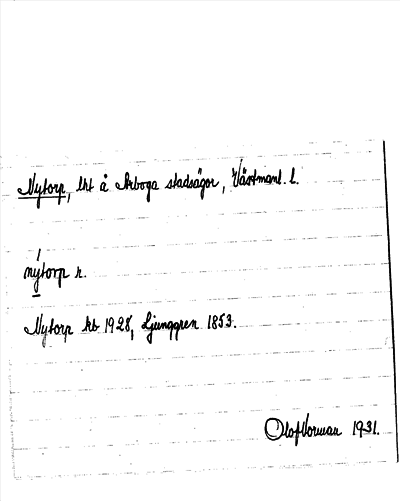 Nytorp, lht å Arboga stadsägor, Västmanl. l.
nýtorp n.
Nytorp kb 1928, Ljunggren 1853.
Olof Vorman 1931.